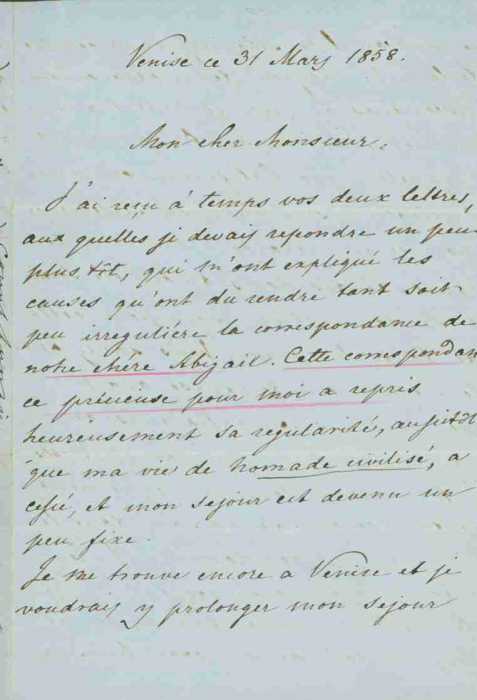 Venise ce 31 Mars 1858.
Mon cher Monsieur.
J'ai reçu à temps vos deux lettres,
aux quelles je devais repondre un peu
plus tôt, qui m'ont expliqué les
causes qu'ont du rendre tant soit
peu irregulière la correspondance de
notre chère Abigail. Cette correspondan
ce precieuse pour moi a repris
heureusement sa regularité, aussitôt
que ma vie de nomade civilisé, a
cessé, et mon sejour est devenu un
peu fixe.
Je me trouve encore a Venise et je
voudrais y prolonger mon sejour